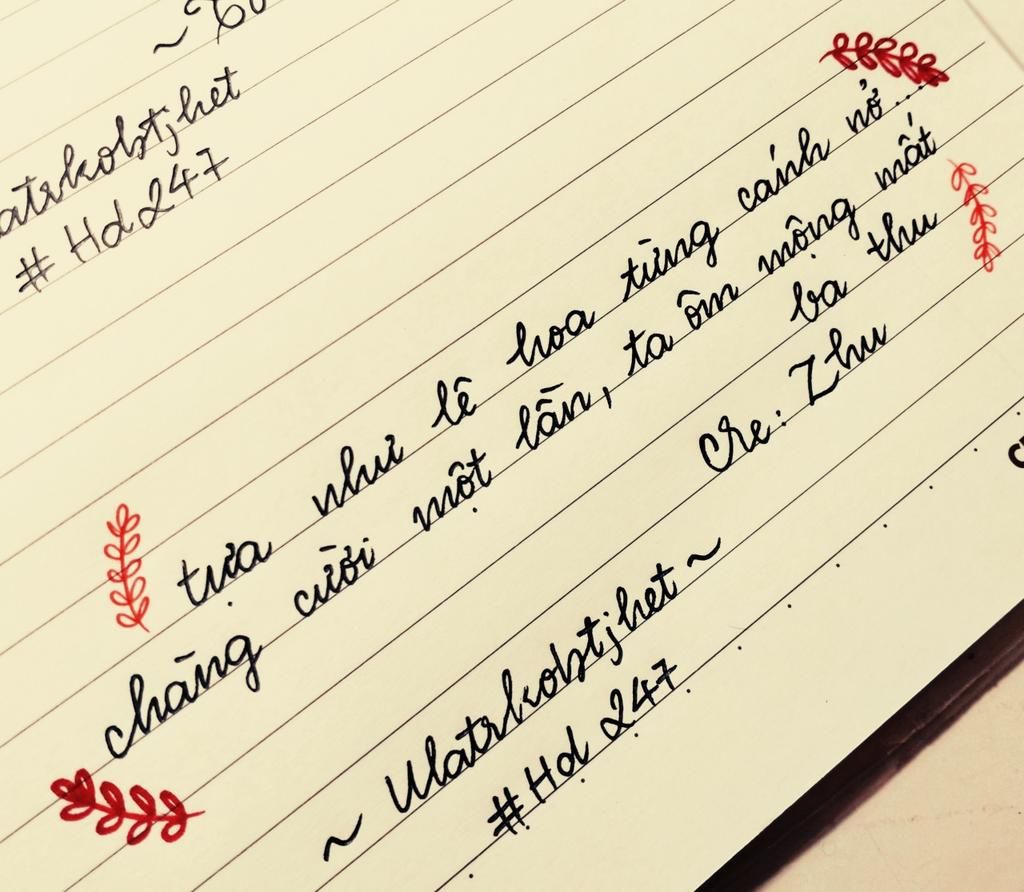 # Hd 247
tựa như lê hoa từng cánh nở...
chàng cười một lần, ta ôm mộng mất
ba thu
Cre: Zhu
~ Watrkobtjhet ~
# Hd 247